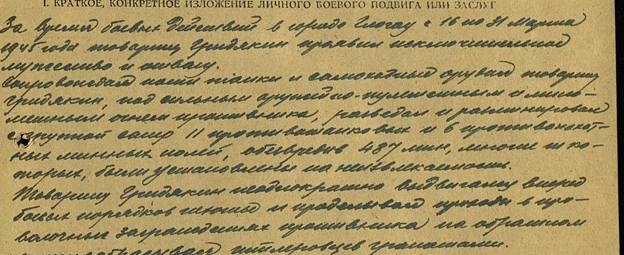 I. КРАТКОЕ, КОНКРЕТНОЕ ИЗЛОЖЕНИЕ ЛИЧНОГО БОЕВОГО ПОДВИГА ИЛИ ЗАСЛУГ
За время боевых действий в городе Глогау с 16 по 31 марта
1945 года товарищ Гридякин проявил исключительное
мужество и отвагу.
Сопровождая наши танки и самоходные орудия товарищ
Гридякин, под сильным оружейно-пулеметным и мино-
метным огнем противника, разведал и разминировал
с группой сапер 11 противотанковых и 6 противопехот-
ных минных полей, обезвредив 487 мин, многие из ко-
торых, были установлены на неизвлекаемость.
Товарищ Гридякин неоднократно выдвигался вперед
боевых порядков пехоты и проделывал проходы в про-
волочных заграждениях противника на обратном
гитлеровцев гранатами.